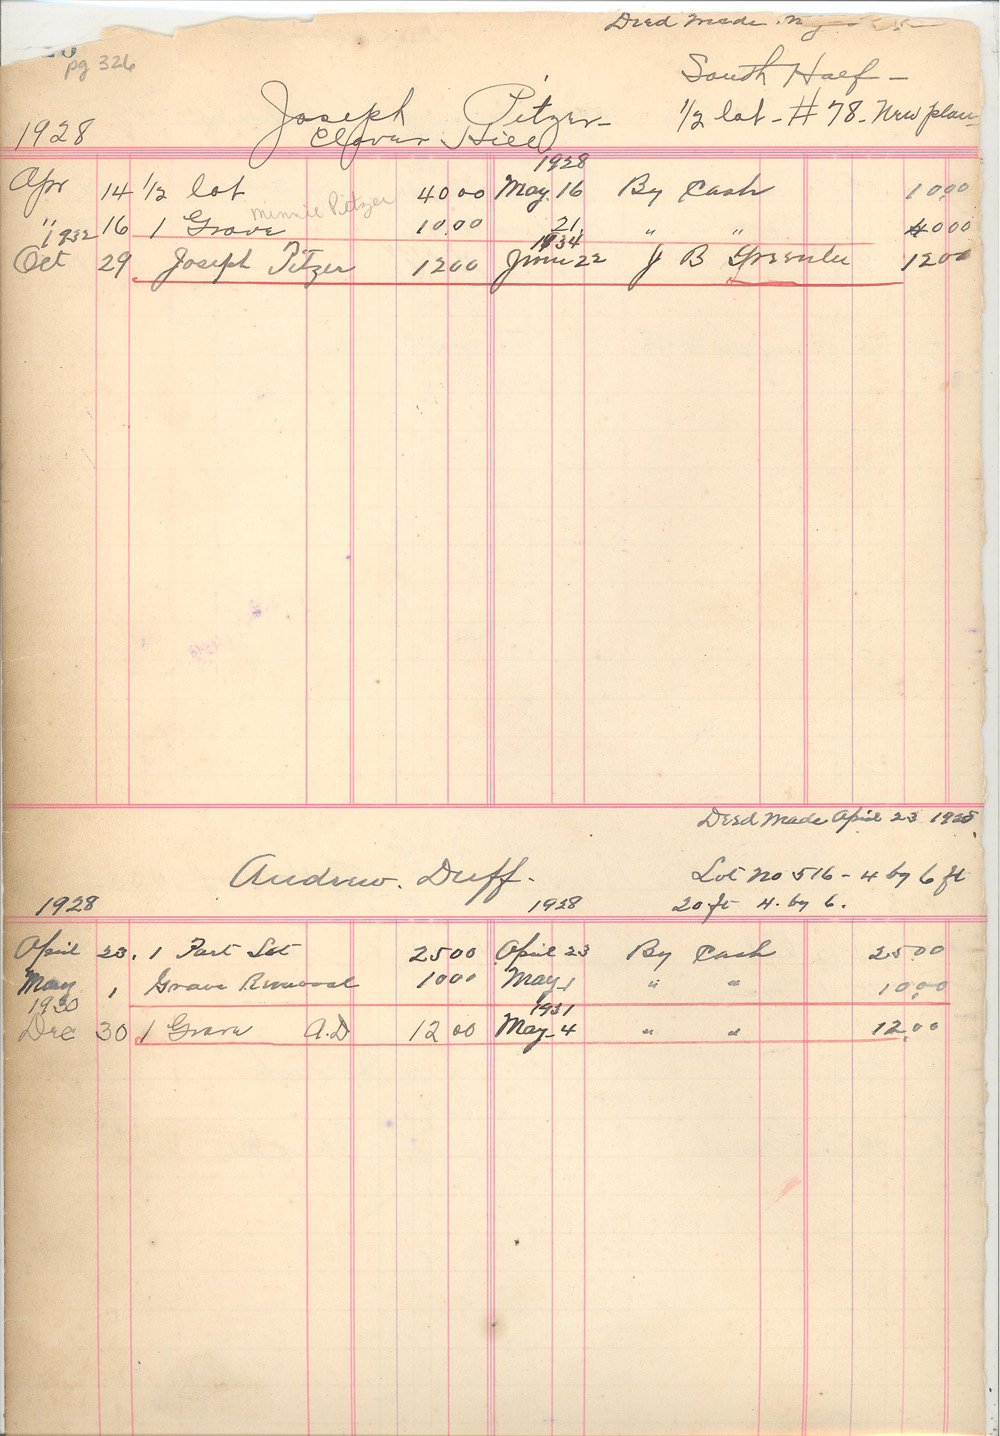 Deed Made
pg 326
South Half -
Joseph Pitzer -
1/2 lot - # 78 - New plan
1928 Clover Hill
1928
Apr 14 1/2 lot 40 00 May. 16 By Cash 10.00
Minnie Pitzer
" 16 1 Grave 10.00 21 " " 40 00
1932 1934
Oct 29 Joseph Pitzer 12 00 June 22 J B Greenlee 12 00
Deed Made April 23 1928
Andrew. Duff. - Lot No 516 - 4 by 6 ft
1928 1928 20 ft 4. by 6.
April 23. 1 Part Lot 25 00 April 23 By Cash 25.00
May 1 Grave Removal 10 00 May 1 " " 10.00
1930 1931
Dec 30 1 Grave A.D 12 00 May - 4 " " 12.00